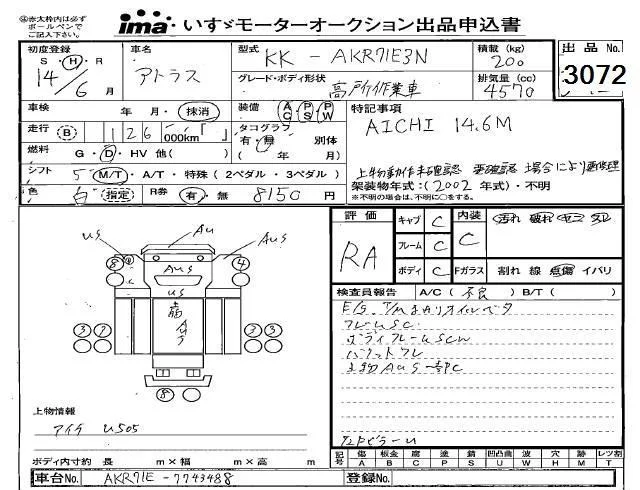 ㊟赤太枠内は必ず
ボールペンで
ご記入下さい。
ima いすゞモーターオークション出品申込書
初度登録
S・H・R
14年
6月
車名
アトラス
型式
KK - AKR71E3N
積載 (kg)
200
出品 No.
3072
グレード・ボディ形状
高所作業車
排気量 (cc)
4570
車検 年 月・抹消
装備 AC PS PW
特記事項
走行 B 126 000km「 」
タコグラフ
有・無 別体
( 年 月)
AICHI 14.6M
燃料 G・D・HV 他( )
シフト 5 M/T・A/T・特殊 (2ペダル・3ペダル)
上物動作未確認 要確認 場合により要修理
架装物年式:(2002 年式)・不明
※不明の場合は、不明に○をする。
色 白 指定 R券 有・無 8150 円
評価
RA
キャブ C
フレーム C
ボディ C
内装 C
汚れ 破れ コゲ スレ
Fガラス 割れ 線 点傷 イバリ
US
AU
AUS
8
4
AUS
4
US
AUS
3 7
3
8
検査員報告 A/C (不良) B/T ( )
E/G. T/Mまわりオイルベタ
フレームSC
ボディフレームSCW
バケットワレ
上物AUS一部C
上物情報
アイチ U505
ボディ内寸約 長 m×幅 m×高 m
記号 傷 A 板金 B 腐 C 塗 P 錆 S 凹凸曲 U 波 W 穴 H 跡 M レツ割 T
車台No. AKR71E-7743488
登録No.